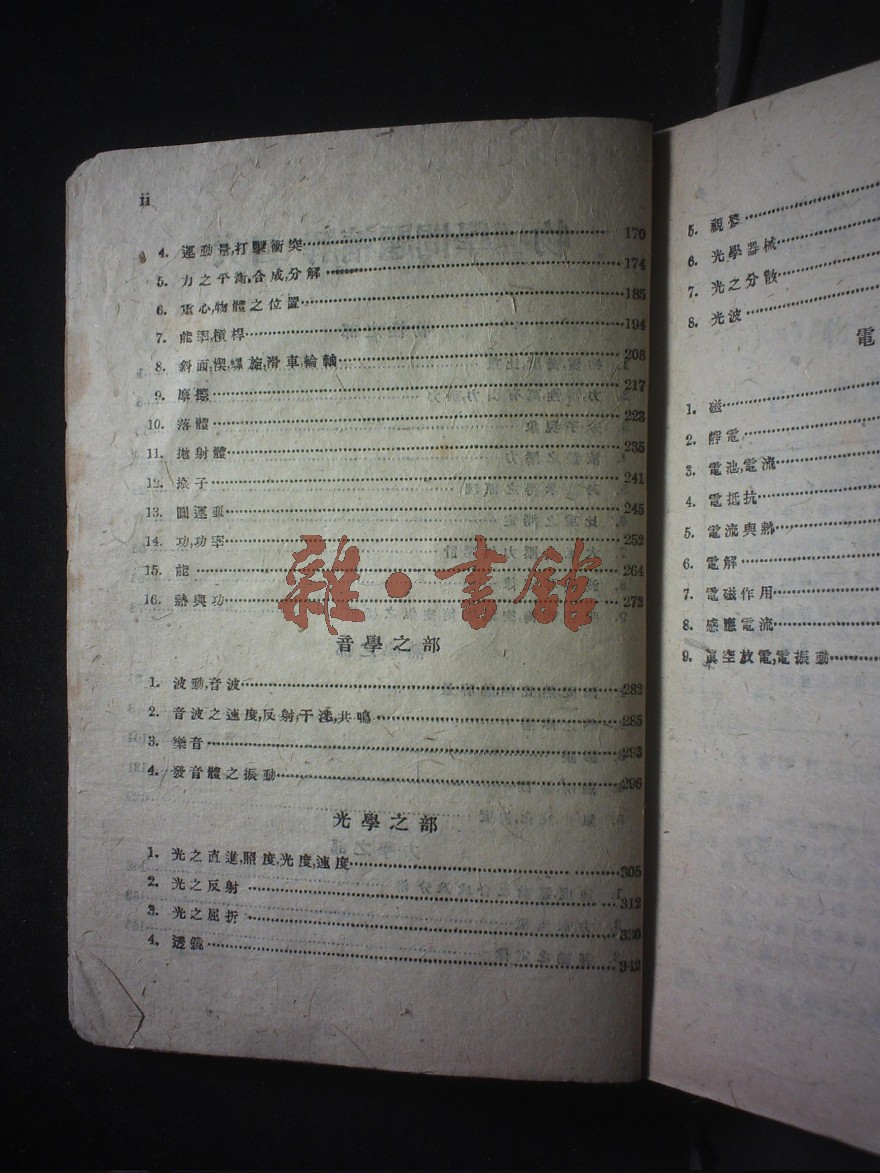 ii
4. 運動量,打擊衝突 170
5. 力之平衡,合成,分解 174
6. 重心,物體之位置 185
7. 能率,槓桿 194
8. 斜面,楔,螺旋,滑車,輪軸 208
9. 摩擦 217
10. 落體 223
11. 抛射體 235
12. 擺子 241
13. 圓運動 245
14. 功,功率 252
15. 能 264
16. 熱與功 272
音學之部
1. 波動,音波 282
2. 音波之速度,反射,干涉,共鳴 285
3. 樂音 293
4. 發音體之振動 296
光學之部
1. 光之直進,照度,光度,速度 305
2. 光之反射 312
3. 光之屈折 330
4. 透鏡 342
雜·書館
5. 視
6. 光學器械
7. 光之分散
8. 光波
電
1. 磁
2. 靜電
3. 電池,電流
4. 電抵抗
5. 電流與熱
6. 電解
7. 電磁作用
8. 感應電流
9. 眞空放電,電振動